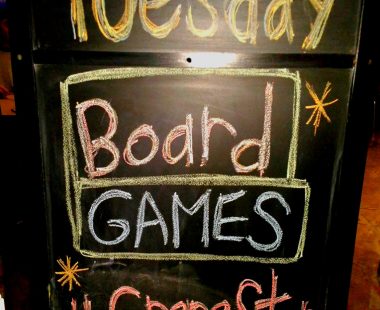 Tuesday
Board
GAMES